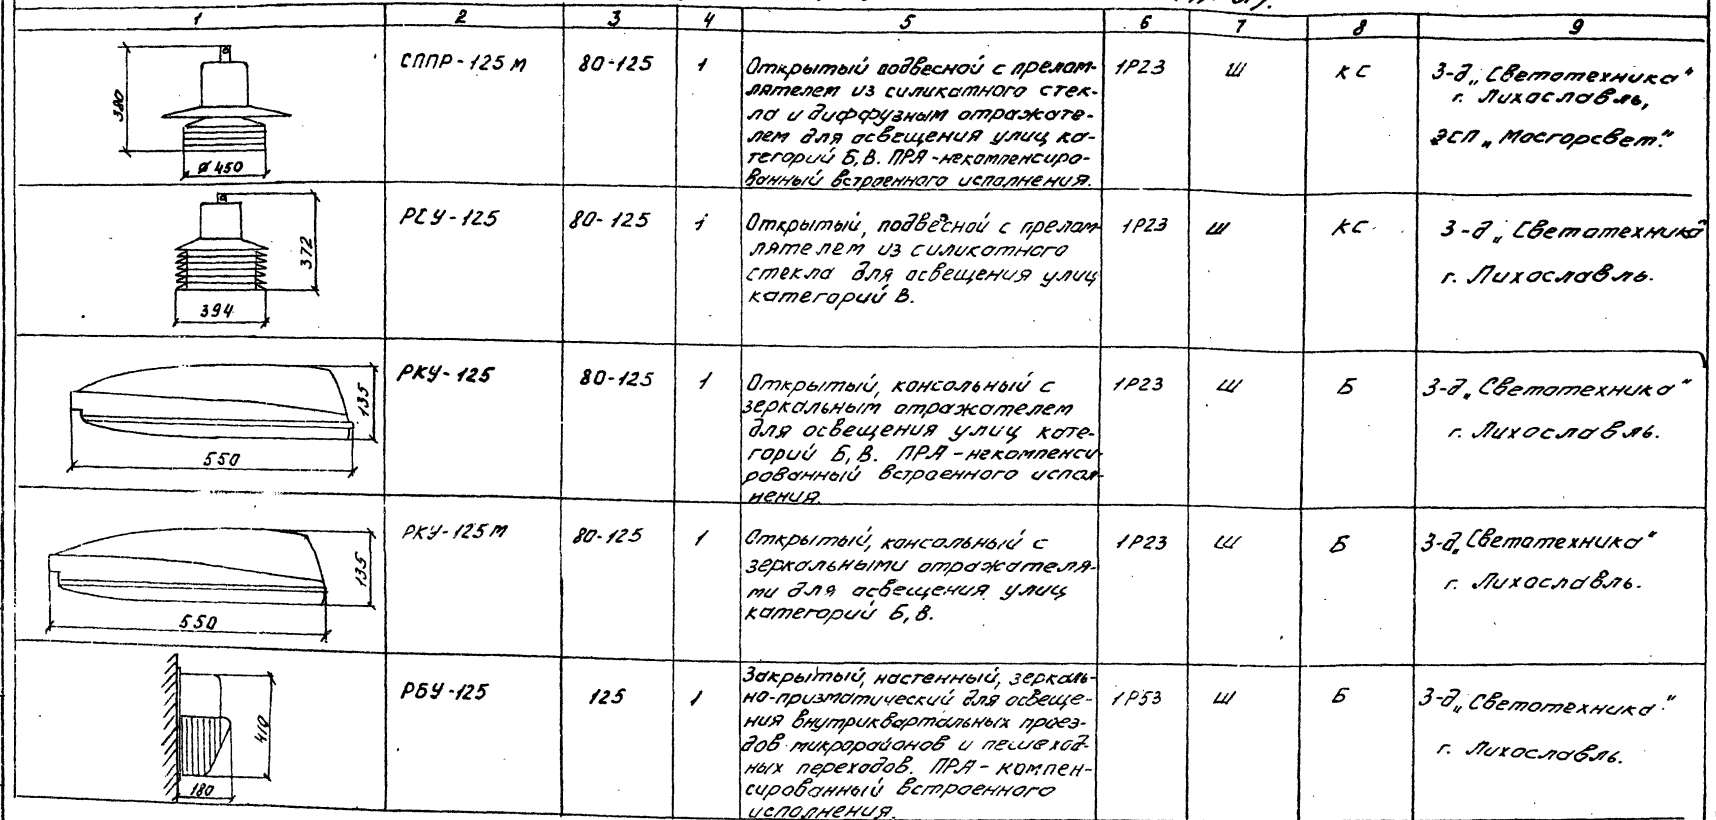 1 2 3 4 5 6 7 8 9
380
ø 450
СППР-125 М
80-125
1
Открытый подвесной с прелом-
лятелем из силикатного стек-
ла и диффузным отражате-
лем для освещения улиц ка-
тегорий Б, В. ПРА-некомпенсиро-
ванный встроенного исполнения.
1Р23
Ш
КС
З-д „Светотехника"
г. Лихославль,
ЭСП „Мосгорсвет."
372
394
РСУ-125
80-125
1
Открытый, подвесной с прелом-
лятелем из силикатного
стекла для освещения улиц
категорий В.
1Р23
Ш
КС
З-д „Светотехника"
г. Лихославль.
135
550
РКУ-125
80-125
1
Открытый, консольный с
зеркальным отражателем
для освещения улиц кате-
горий Б, В. ПРА-некомпенси-
рованный встроенного испол-
нения.
1Р23
Ш
Б
З-д „Светотехника"
г. Лихославль.
135
550
РКУ-125 М
80-125
1
Открытый, консольный с
зеркальными отражателя-
ми для освещения улиц
категорий Б, В.
1Р23
Ш
Б
З-д „Светотехника"
г. Лихославль.
410
180
РБУ-125
125
1
Закрытый, настенный, зеркаль-
но-призматический для освеще-
ния внутриквартальных проез-
дов микрорайонов и пешеход-
ных переходов. ПРА-компен-
сированный встроенного
исполнения.
1Р53
Ш
Б
З-д „Светотехника"
г. Лихославль.